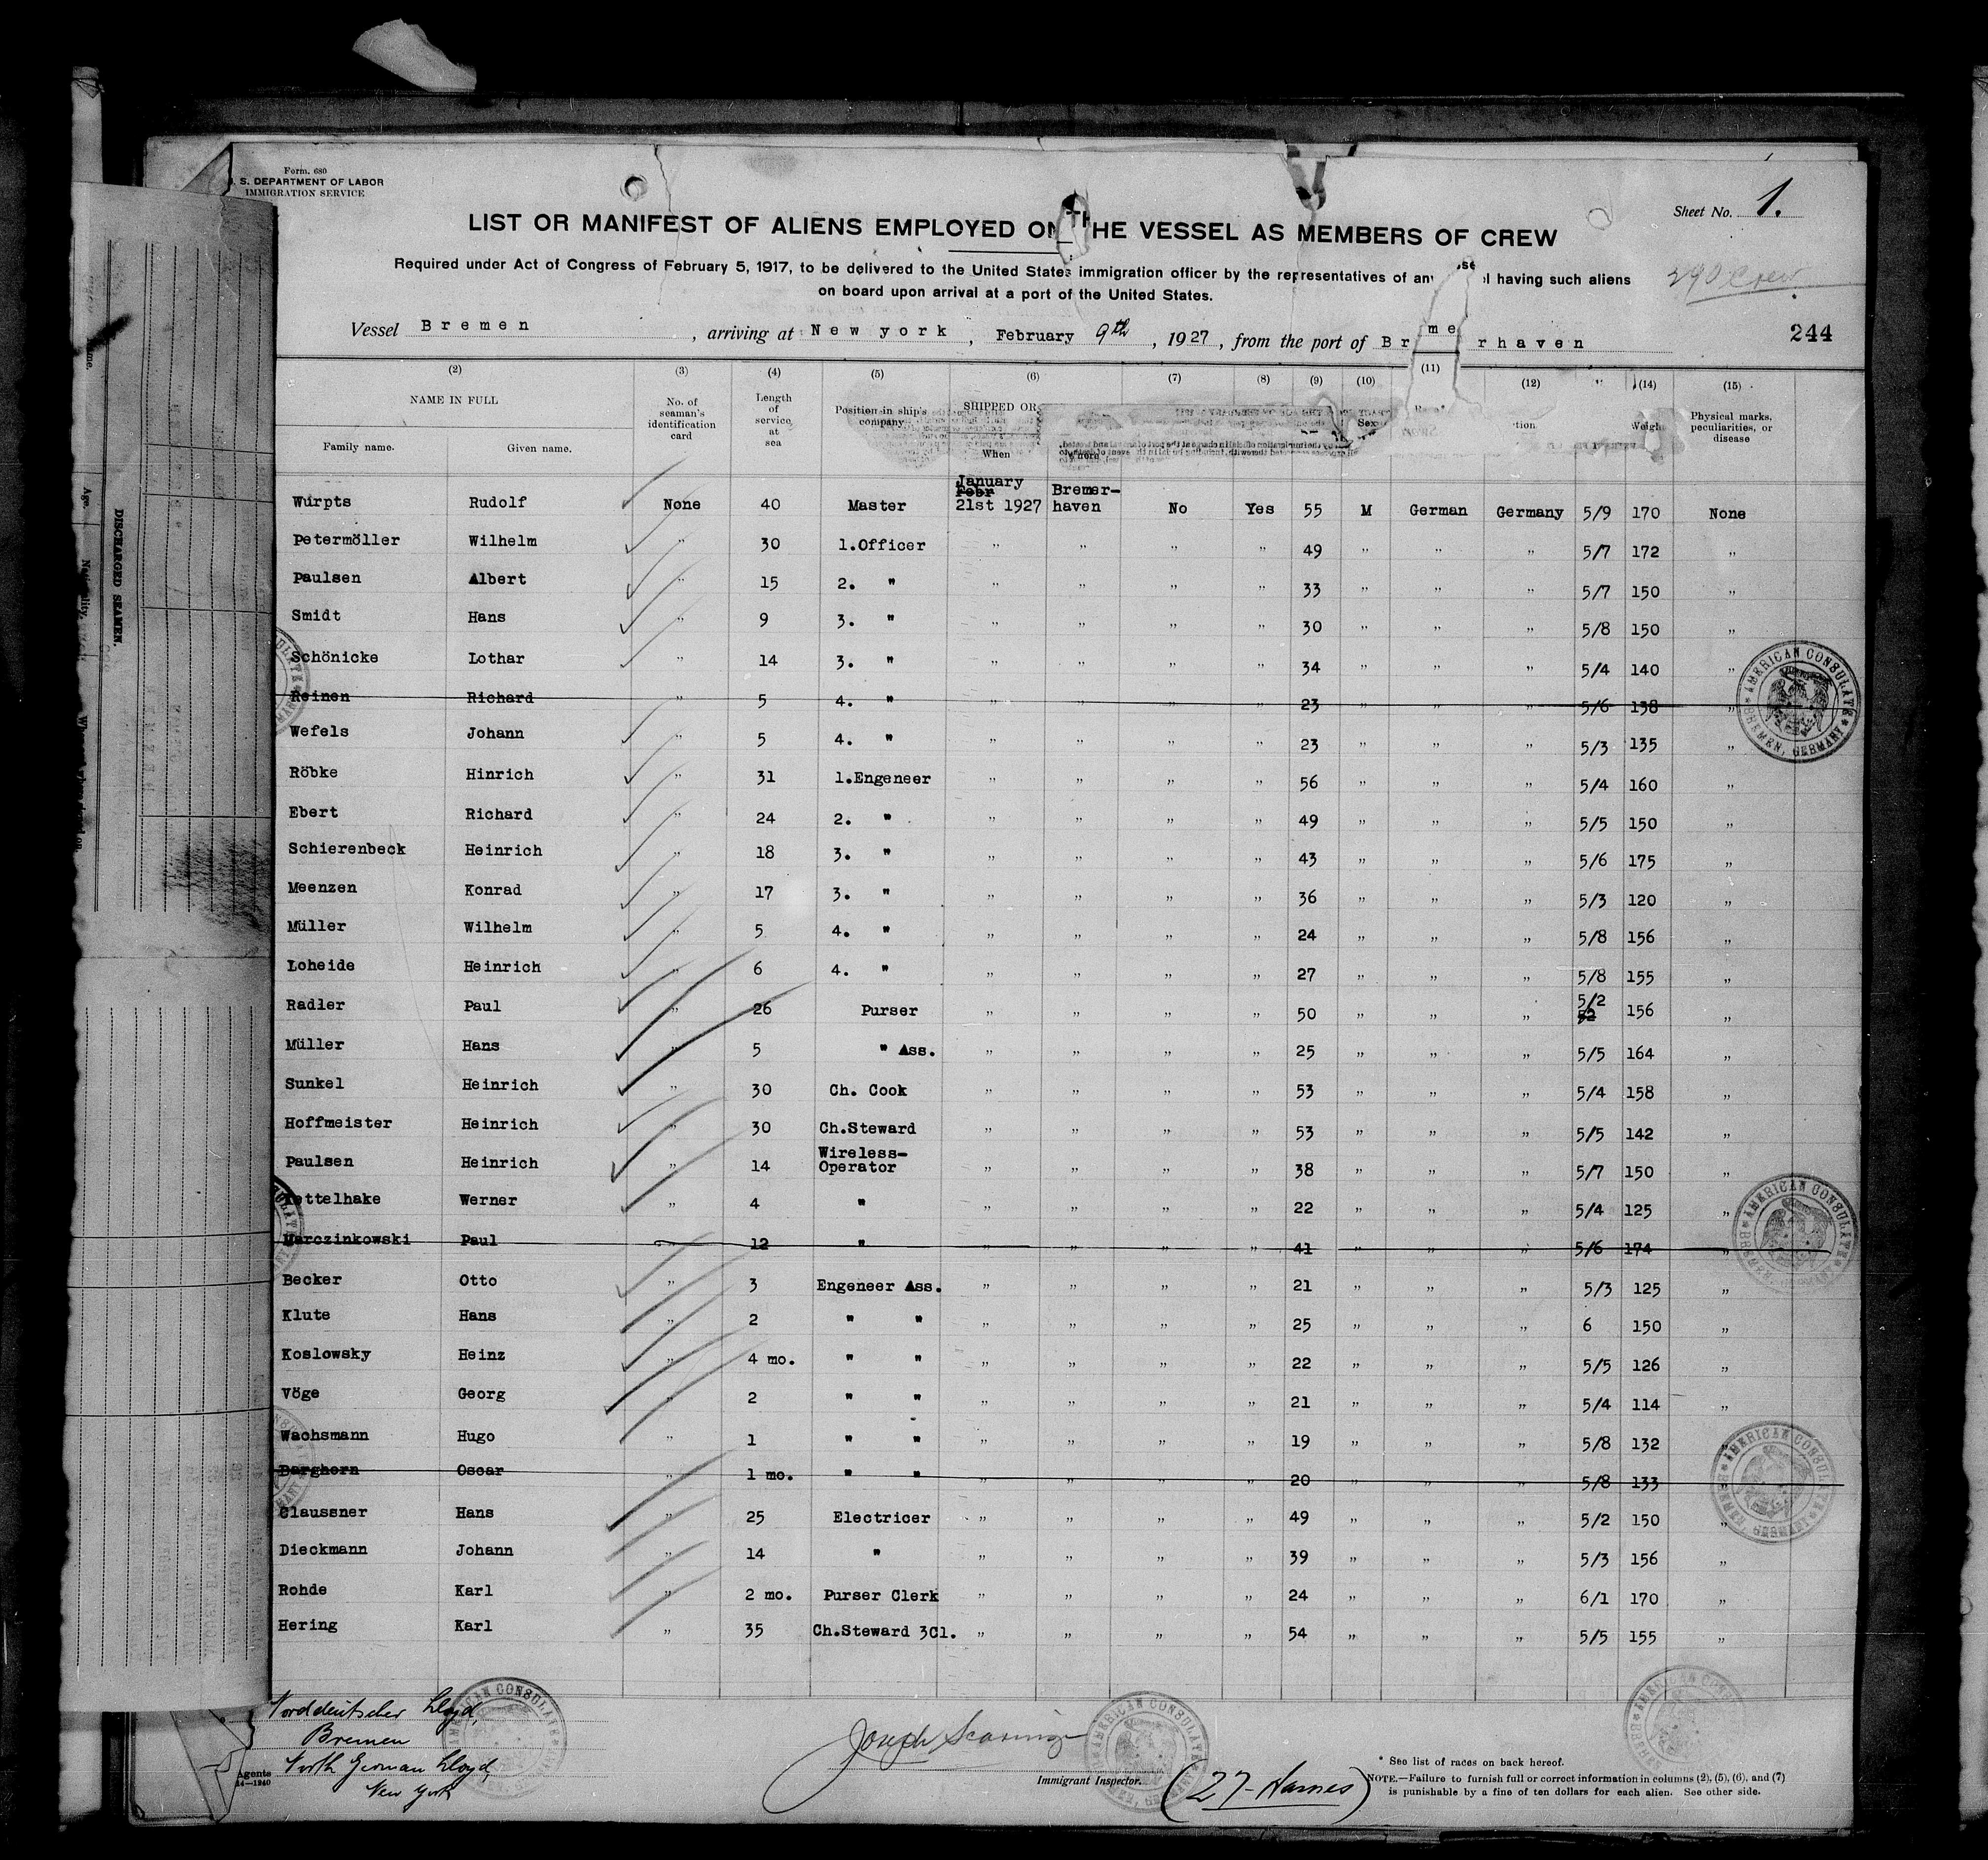 Form. 680
S. DEPARTMENT OF LABOR
IMMIGRATION SERVICE
Sheet No. 1.
LIST OR MANIFEST OF ALIENS EMPLOYED ON THE VESSEL AS MEMBERS OF CREW
Required under Act of Congress of February 5, 1917, to be delivered to the United States immigration officer by the representatives of any having such aliens
on board upon arrival at a port of the United States.
290 Crew
Vessel Bremen, arriving at New york, February 9th, 1927, from the port of Bremerhaven
244
(2) (3) (4) (5) (6) (7) (8) (9) (10) (11) (12) (14) (15)
NAME IN FULL
Family name. Given name.
No. of seaman's identification card
Length of service at sea
Position in ship's company
SHIPPED OR
When
Where
Sex
Weight
Physical marks, peculiarities, or disease
Wurpts Rudolf None 40 Master January Febr 21st 1927 Bremer-haven No Yes 55 M German Germany 5/9 170 None
Petermöller Wilhelm " 30 1.Officer " " " " 49 " " " 5/7 172 "
Paulsen Albert " 15 2. " " " " " 33 " " " 5/7 150 "
Smidt Hans " 9 3. " " " " " 30 " " " 5/8 150 "
Schönicke Lothar " 14 3. " " " " " 34 " " " 5/4 140 "
Reinen Richard " 5 4. " " " " " 23 " " " 5/6 138 "
Wefels Johann " 5 4. " " " " " 23 " " " 5/3 135 "
Röbke Hinrich " 31 1.Engeneer " " " " 56 " " " 5/4 160 "
Ebert Richard " 24 2. " " " " " 49 " " " 5/5 150 "
Schierenbeck Heinrich " 18 3. " " " " " 43 " " " 5/6 175 "
Meenzen Konrad " 17 3. " " " " " 36 " " " 5/3 120 "
Müller Wilhelm " 5 4. " " " " " 24 " " " 5/8 156 "
Loheide Heinrich " 6 4. " " " " " 27 " " " 5/8 155 "
Radler Paul " 26 Purser " " " " 50 " " " 5/2 52 156 "
Müller Hans " 5 " Ass. " " " " 25 " " " 5/5 164 "
Sunkel Heinrich " 30 Ch. Cook " " " " 53 " " " 5/4 158 "
Hoffmeister Heinrich " 30 Ch.Steward " " " " 53 " " " 5/5 142 "
Paulsen Heinrich " 14 Wireless-Operator " " " " 38 " " " 5/7 150 "
ettelhake Werner " 4 " " " " " 22 " " " 5/4 125 "
Marczinkowski Paul " 12 " " " " " 41 " " " 5/6 174 "
Becker Otto " 3 Engeneer Ass. " " " " 21 " " " 5/3 125 "
Klute Hans " 2 " " " " " " 25 " " " 6 150 "
Koslowsky Heinz " 4 mo. " " " " " " 22 " " " 5/5 126 "
Vöge Georg " 2 " " " " " " 21 " " " 5/4 114 "
Wachsmann Hugo " 1 " " " " " " 19 " " " 5/8 132 "
Barghorn Oscar " 1 mo. " " " " " " 20 " " " 5/8 133 "
Claussner Hans " 25 Electricer " " " " 49 " " " 5/2 150 "
Dieckmann Johann " 14 " " " " " 39 " " " 5/3 156 "
Rohde Karl " 2 mo. Purser Clerk " " " " 24 " " " 6/1 170 "
Hering Karl " 35 Ch.Steward 3Cl. " " " " 54 " " " 5/5 155 "
Norddeutscher Lloyd,
Bremen
North German Lloyd,
New York
Agents
14—1240
Joseph
Immigrant Inspector.
(27-Names)
* See list of races on back hereof.
NOTE.—Failure to furnish full or correct information in columns (2), (5), (6), and (7)
is punishable by a fine of ten dollars for each alien. See other side.
AMERICAN CONSULATE
BREMEN, GERMANY
DISCHARGED SEAMEN.